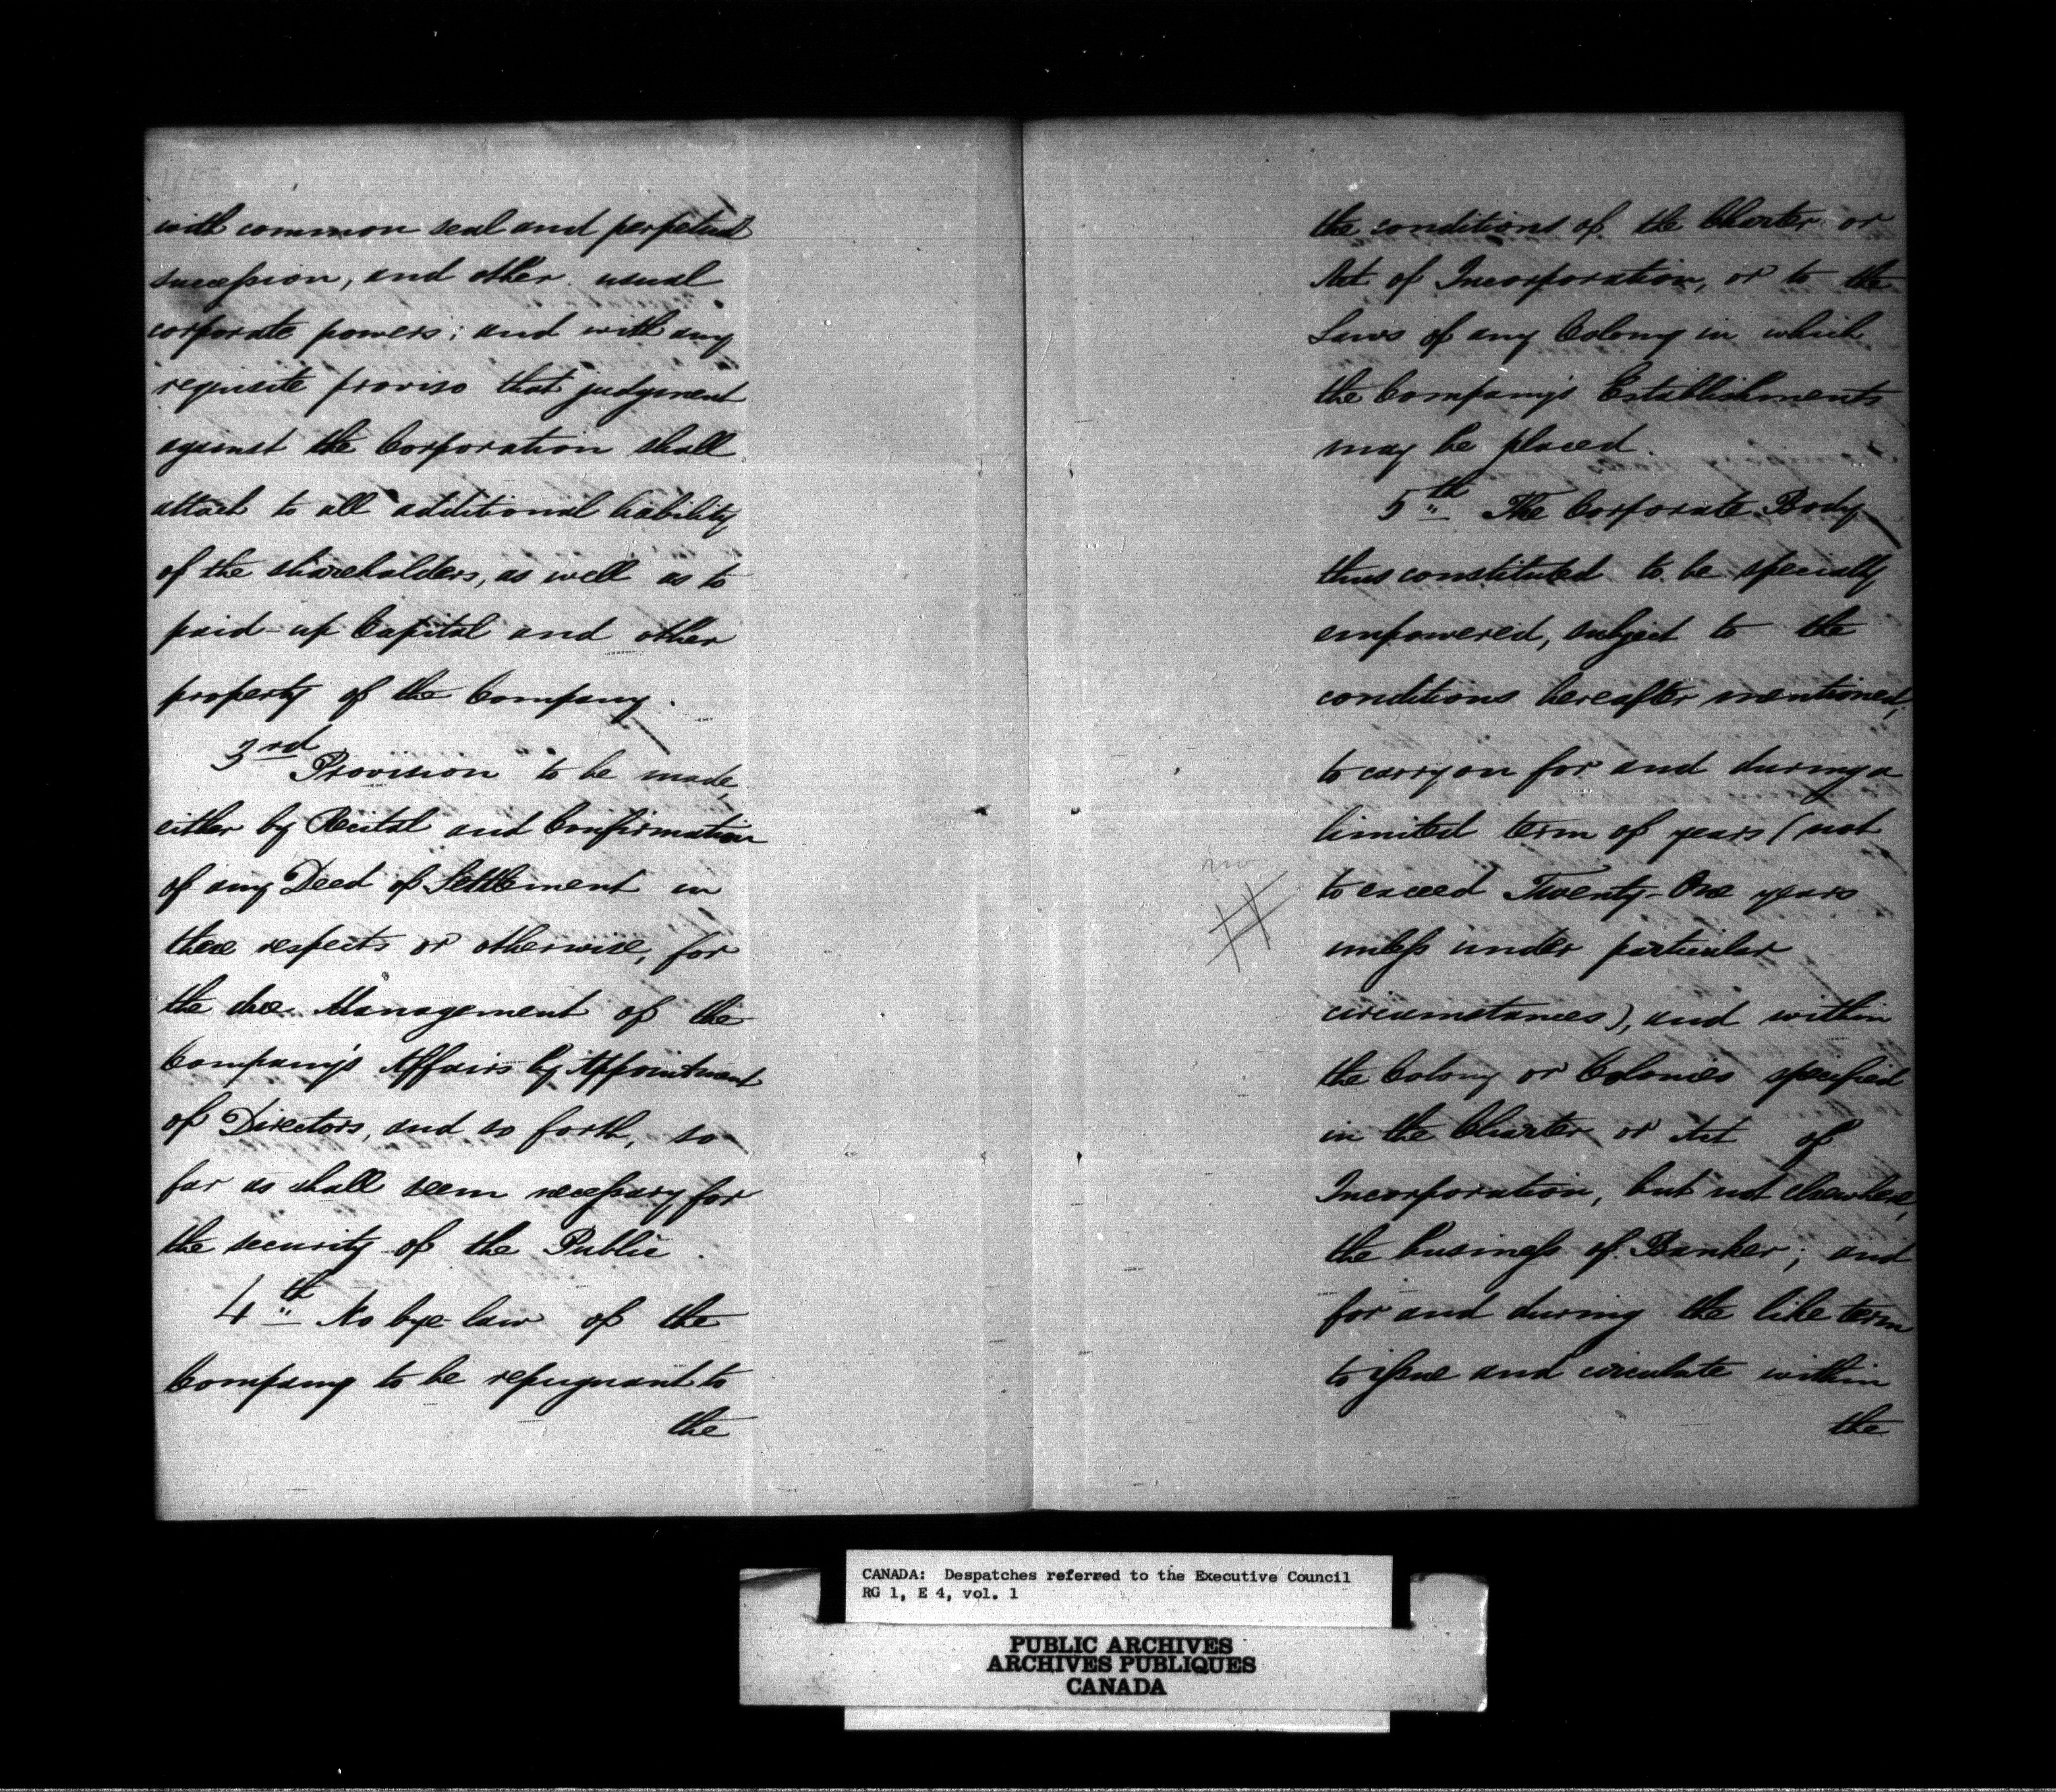 with common seal and perpetual
succession, and other usual
corporate powers; and with any
requisite proviso that judgment
against the Corporation shall
attach to all additional liability
of the shareholders, as well as to
paid-up Capital and other
property of the Company.
3rd Provision to be made,
either by Recital and Confirmation
of any Deed of Settlement in
these respects or otherwise, for
the due Management of the
Company's Affairs by Appointment
of Directors, and so forth, so
far as shall seem necessary for
the security of the Public.
4th No bye-law of the
Company to be repugnant to
the
the conditions of the Charter or
Act of Incorporation, or to the
Laws of any Colony in which
the Company's Establishments
may be placed.
5th The Corporate Body
thus constituted to be specially
empowered, subject to the
conditions hereafter mentioned,
to carry on for and during a
limited term of years (not
to exceed Twenty-One years
unless under particular
circumstances), and within
the Colony or Colonies specified
in the Charter or Act of
Incorporation, but not elsewhere,
the business of Banker; and
for and during the like term
to issue and circulate within
the
CANADA: Despatches referred to the Executive Council
RG 1, E 4, vol. 1
PUBLIC ARCHIVES
ARCHIVES PUBLIQUES
CANADA